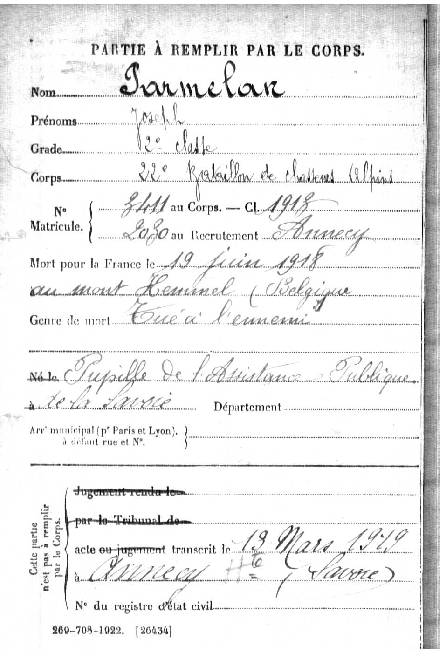 PARTIE À REMPLIR PAR LE CORPS.
Nom Parmelan
Prénoms Joseph
Grade 2e classe
Corps 22e Bataillon de chasseurs Alpins
N° Matricule. { au Corps. — Cl. 1918
2030 au Recrutement Annecy
Mort pour la France le 19 juin 1918
au mont Hemmel (Belgique
Genre de mort Tué à l'ennemi
Né le Pupille de l'Assistance Publique
à de la Savoie Département
Arrt municipal (pr Paris et Lyon), à défaut rue et N°. {
Cette partie n'est pas à remplir par le Corps.
Jugement rendu le
par le Tribunal de
acte ou jugement transcrit le 13 Mars 1919
à Annecy Hte (Savoie)
N° du registre d'état civil
269-708-1922. [26434]